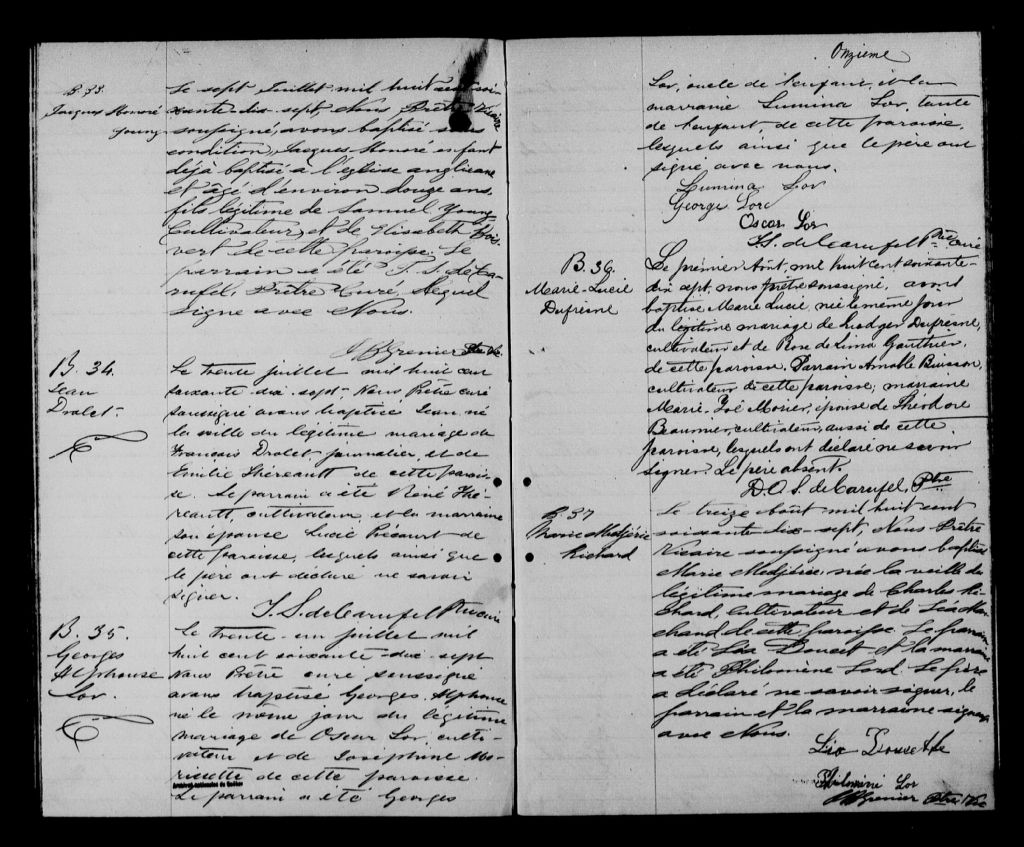 B. 33.
Jacques Honoré
Young
Le sept Juillet mil huit cent soi-
xante-dix-sept, nous Prêtre Vicaire
soussigné, avons baptisé sous
condition, Jacques Honoré enfant
déjà baptisé à l'église anglicane
et âgé d'environ douze ans,
fils légitime de Samuel Young
Cultivateur, et de Elisabeth Bois-
vert de cette paroisse. Le
parrain a été J. S. de Ca-
rufel, Prêtre Curé, lequel
signe avec Nous.
Grenier Ptre Vic.
B. 34.
Jean
Drolet-
Le trente juillet mil huit cent
soixante dix-sept- Nous Prêtre curé
soussigné avons baptisé Jean né
la veille du légitime mariage de
Francois Drolet, journalier, et de
Emilie Théreault de cette parois-
se. Le parrain a été René Thé-
reault, cultivateur, et la marraine
son épouse Lucie Précourt de
cette paroisse, lesquels ainsi que
le père ont déclaré ne savoir
signer.
J. S. de Carufel Ptre curé
B. 35.
Georges
Alphonse
Lor.
Le trente-un juillet mil
huit cent soixante-dix sept
Nous Prêtre curé soussigné
avons baptisé Georges, Alphonse
né le même jour du légitime
mariage de Oscar Lor, culti-
vateur et de Joséphine Mo-
rissette de cette paroisse.
Archives nationales du Québec
Le parrain a été Georges
Onzième
Lor, oncle de l'enfant, et la
marraine Lumina Lor, tante
de l'enfant, de cette paroisse,
lesquels ainsi que le père ont
signé avec nous.
Lumina Lor
George Lord
Oscar Lor
J. S. de Carufel Ptre Curé
B. 36.
Marie-Lucie
Dufresne
Le premier Août, mil huit cent soixante-
dix sept, nous prêtre soussigné, avons
baptisé Marie Lucie, née le même jour
du légitime mariage de Rodger Dufresne,
cultivateur et de Rose de Lima Gauthier,
de cette paroisse. Parrain Amable Buisson,
cultivateur de cette paroisse; marraine
Marie-Zoé Morier, épouse de Théodore
Beaumier, cultivateur, aussi de cette
paroisse, lesquels ont déclaré ne savoir
signer. Le père absent.
D. O. S. de Carufel, Ptre
B. 37
Marie Medjérie
Richard
Le treize Août mil huit cent
soixante-dix-sept, Nous Prêtre
Vicaire soussigné avons baptisé
Marie Medjérie, née la veille du
légitime mariage de Charles Ri-
chard, Cultivateur et de Léa Mar-
chand de cette paroisse. Le parrain
a été Léa Doucet et la marraine
a été Philomène Lord. Le père
a déclaré ne savoir signer, le
parrain et la marraine signent
avec Nous.
Doucette
Philomini Lor
Grenier Ptre Vic